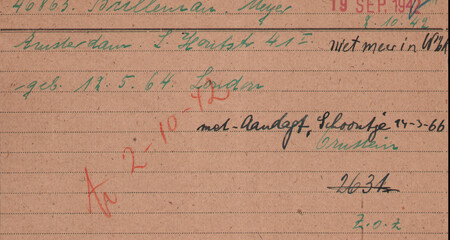 40863. Brilleman Meyer
19 SEP. 194
8.10.42
Amsterdam. L. Houtstr 41 I
niet meer in
geb. 12.5.64. London
A 2-10-42
met - Aandagt, Schoontje 14-3-66
Ornstein
2631
Z.O.Z